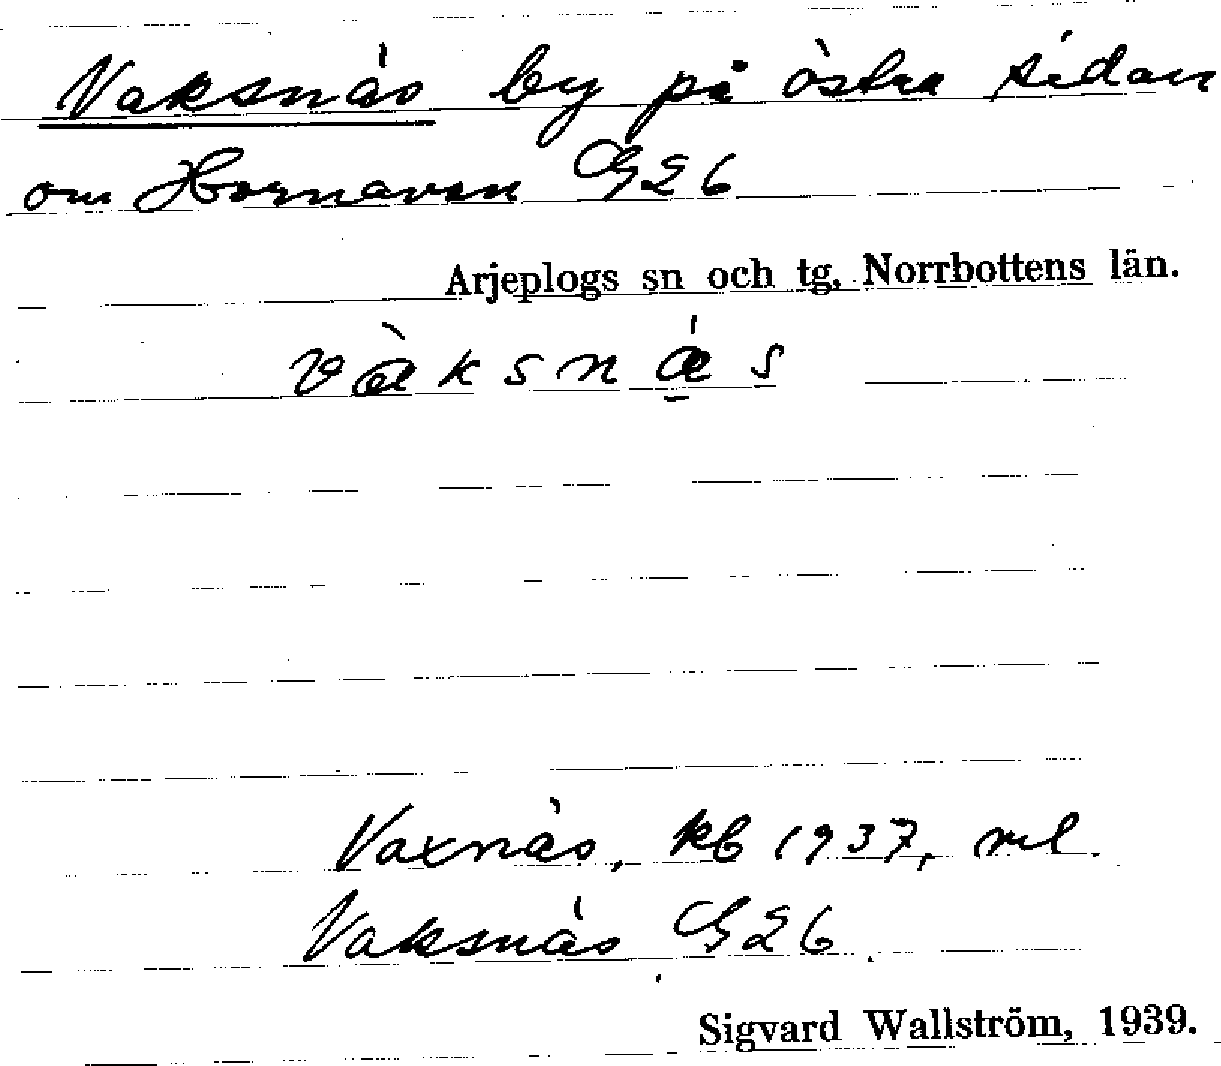 Vaksnäs by på östra sidan
om Hornavan G26
Arjeplogs sn och tg, Norrbottens län.
vàksnǽs
Vaxnäs, kb 1937, ml.
Vaksnäs G26
Sigvard Wallström, 1939.